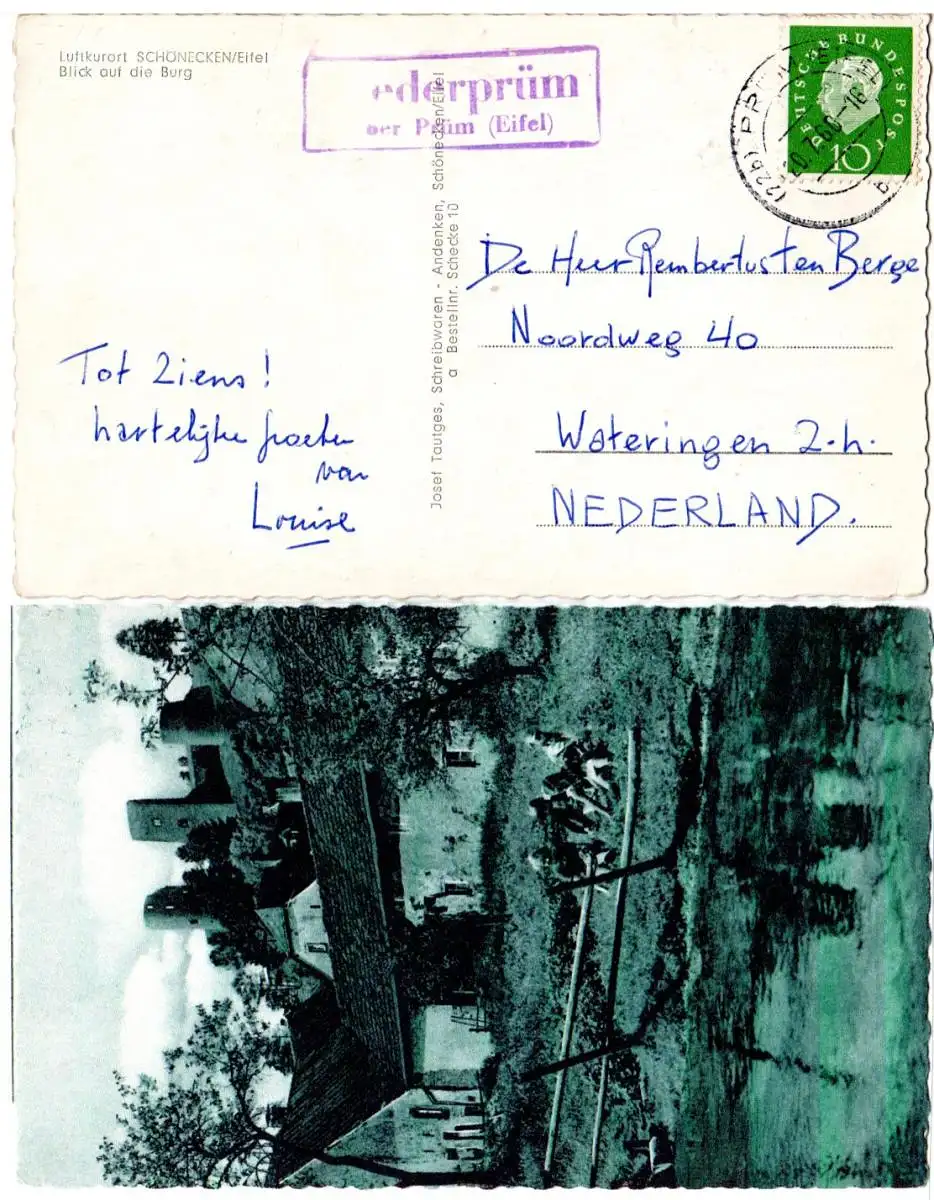 Luftkurort SCHÖNECKEN/Eifel
Blick auf die Burg
ederprüm
ber Prüm (Eifel)
DEUTSCHE BUNDESPOST
10
(22b) PRÜM (EIFEL)
20.7.60-16
a
Josef Tautges, Schreibwaren - Andenken, Schönecken/Eifel
a Bestellnr. Schecke 10
De Heer Rembertus ten Berge
Noordweg 40
Wateringen Z.h.
NEDERLAND.
Tot Ziens!
hartelijke groeten
van
Louise